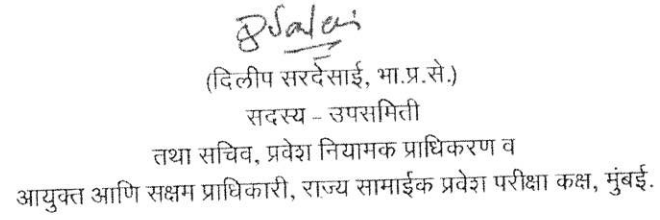 (दिलीप सरदेसाई, भा.प्र.से.)
सदस्य – उपसमिती
तथा सचिव, प्रवेश नियामक प्राधिकरण व
आयुक्त आणि सक्षम प्राधिकारी, राज्य सामाईक प्रवेश परीक्षा कक्ष, मुंबई.